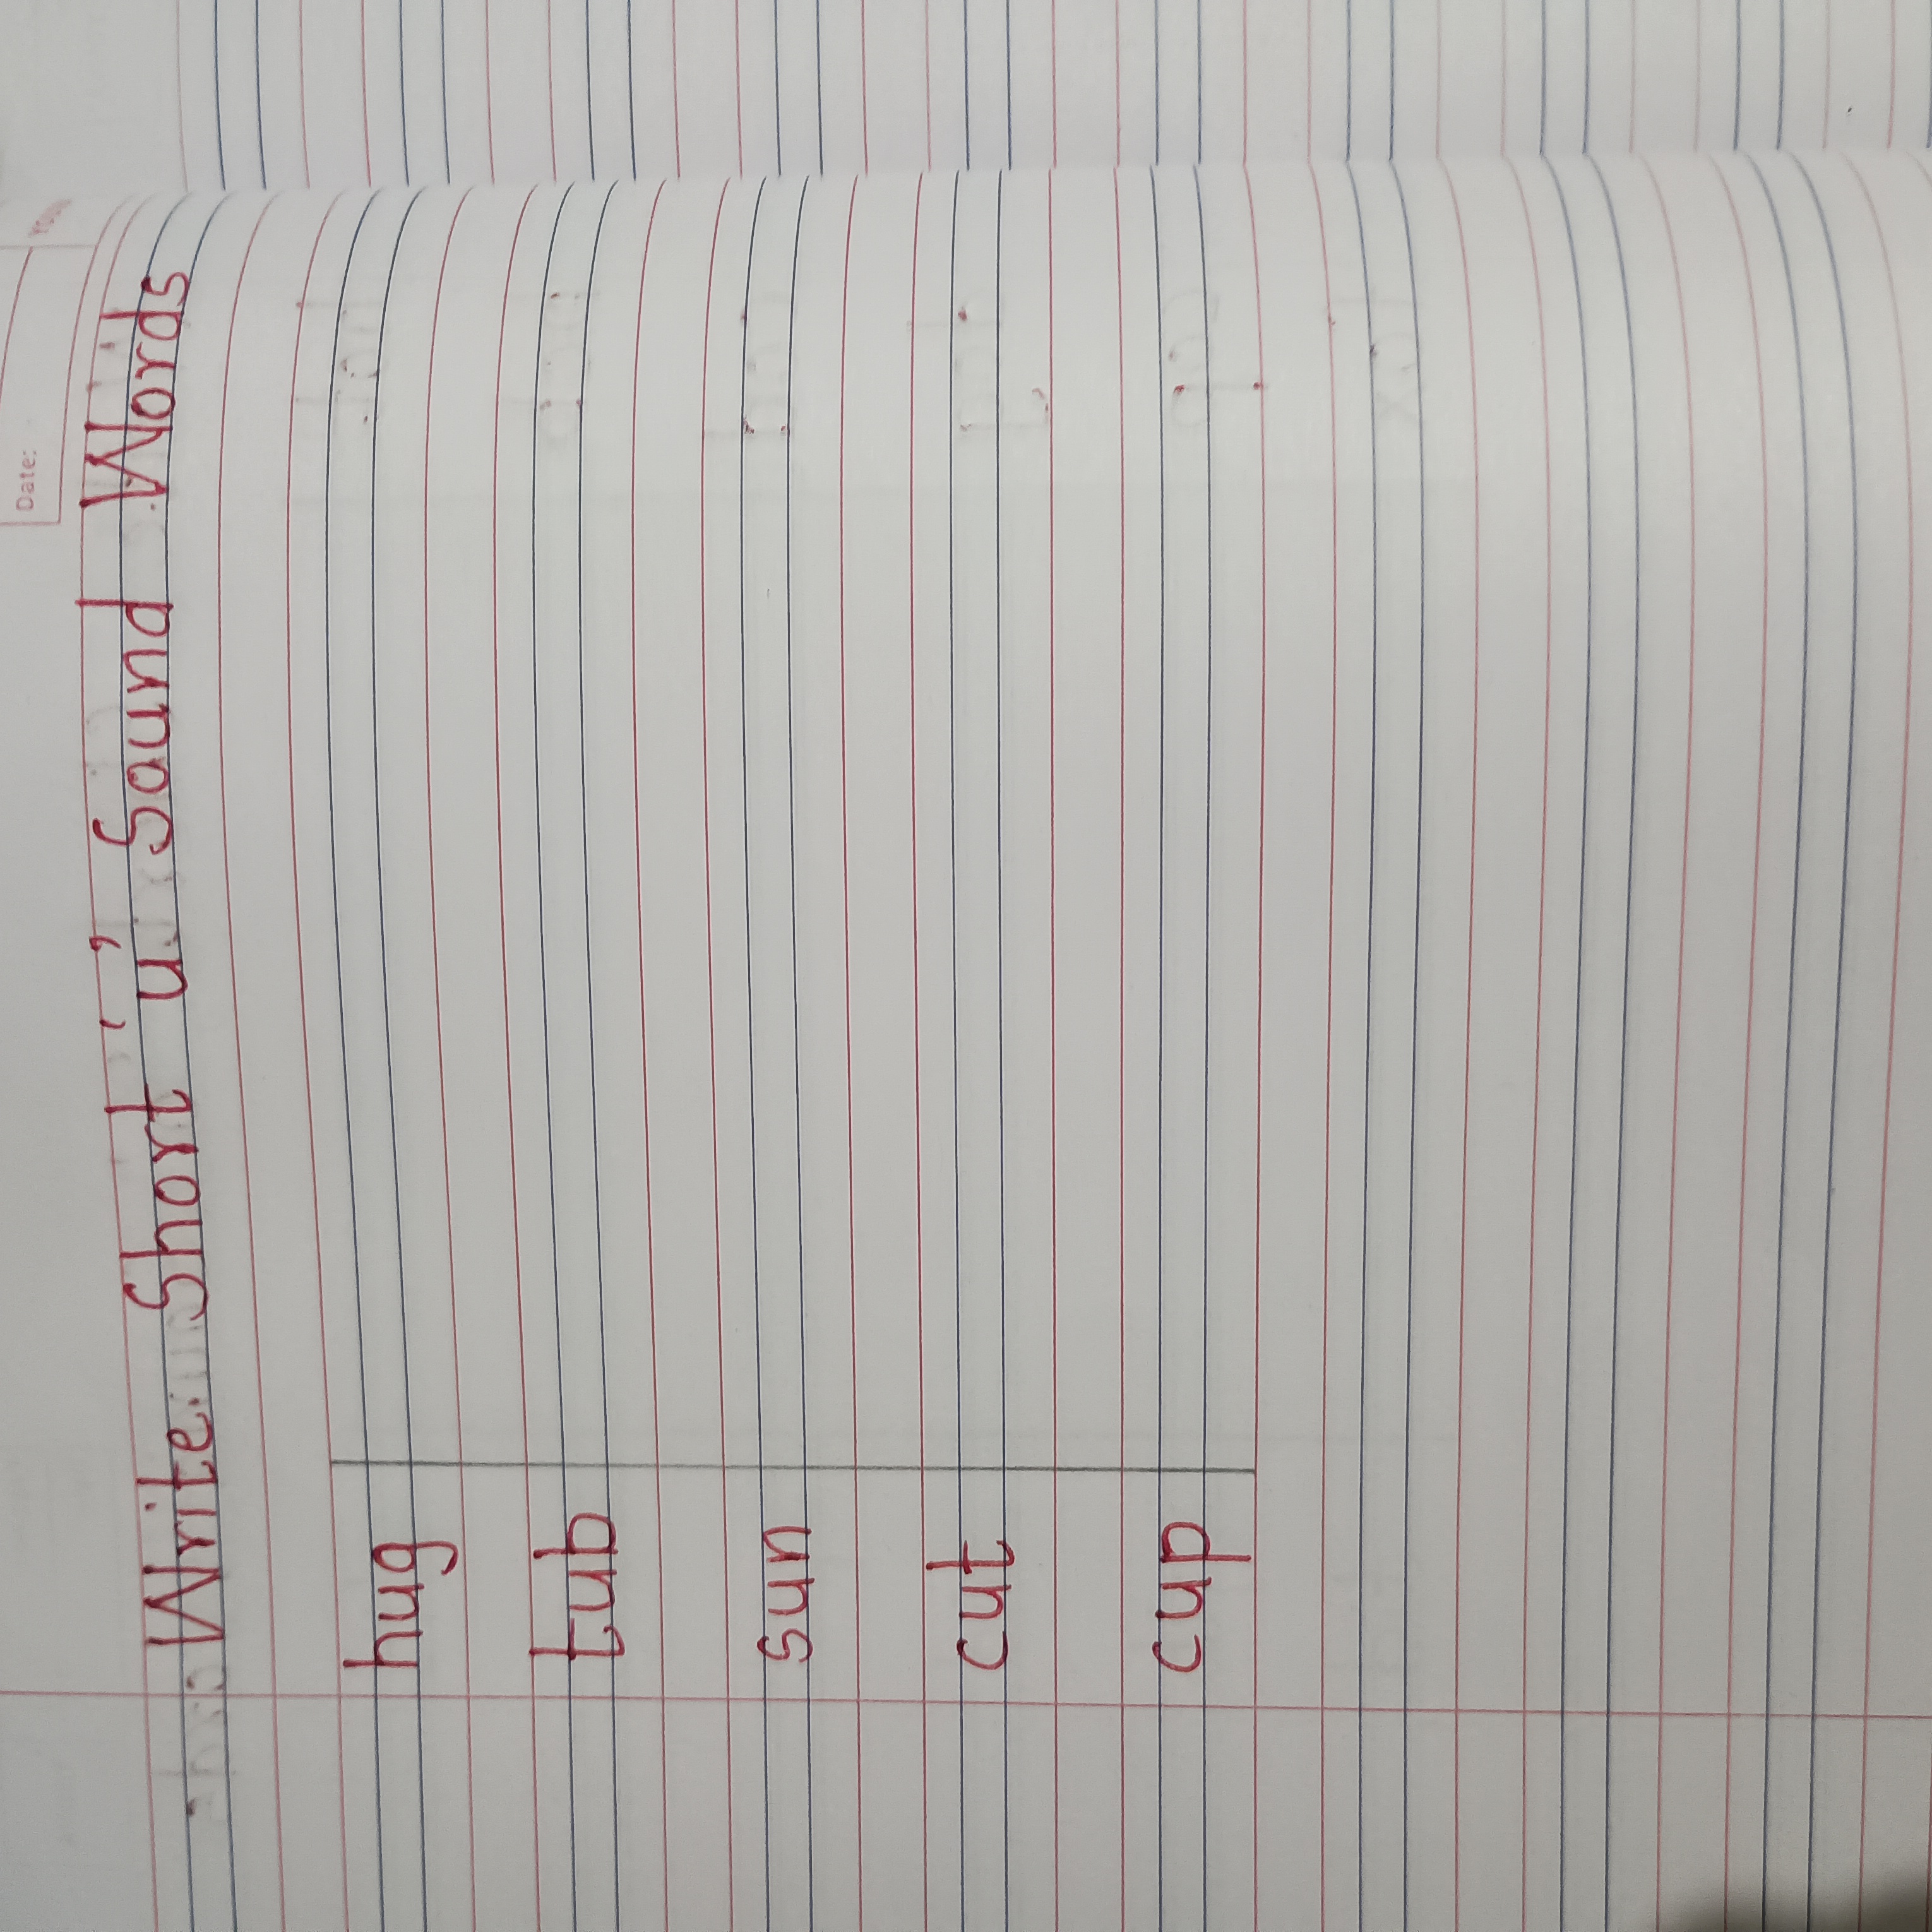 Date:
Write Short 'u' Sound Words
hug
tub
sun
cut
cup